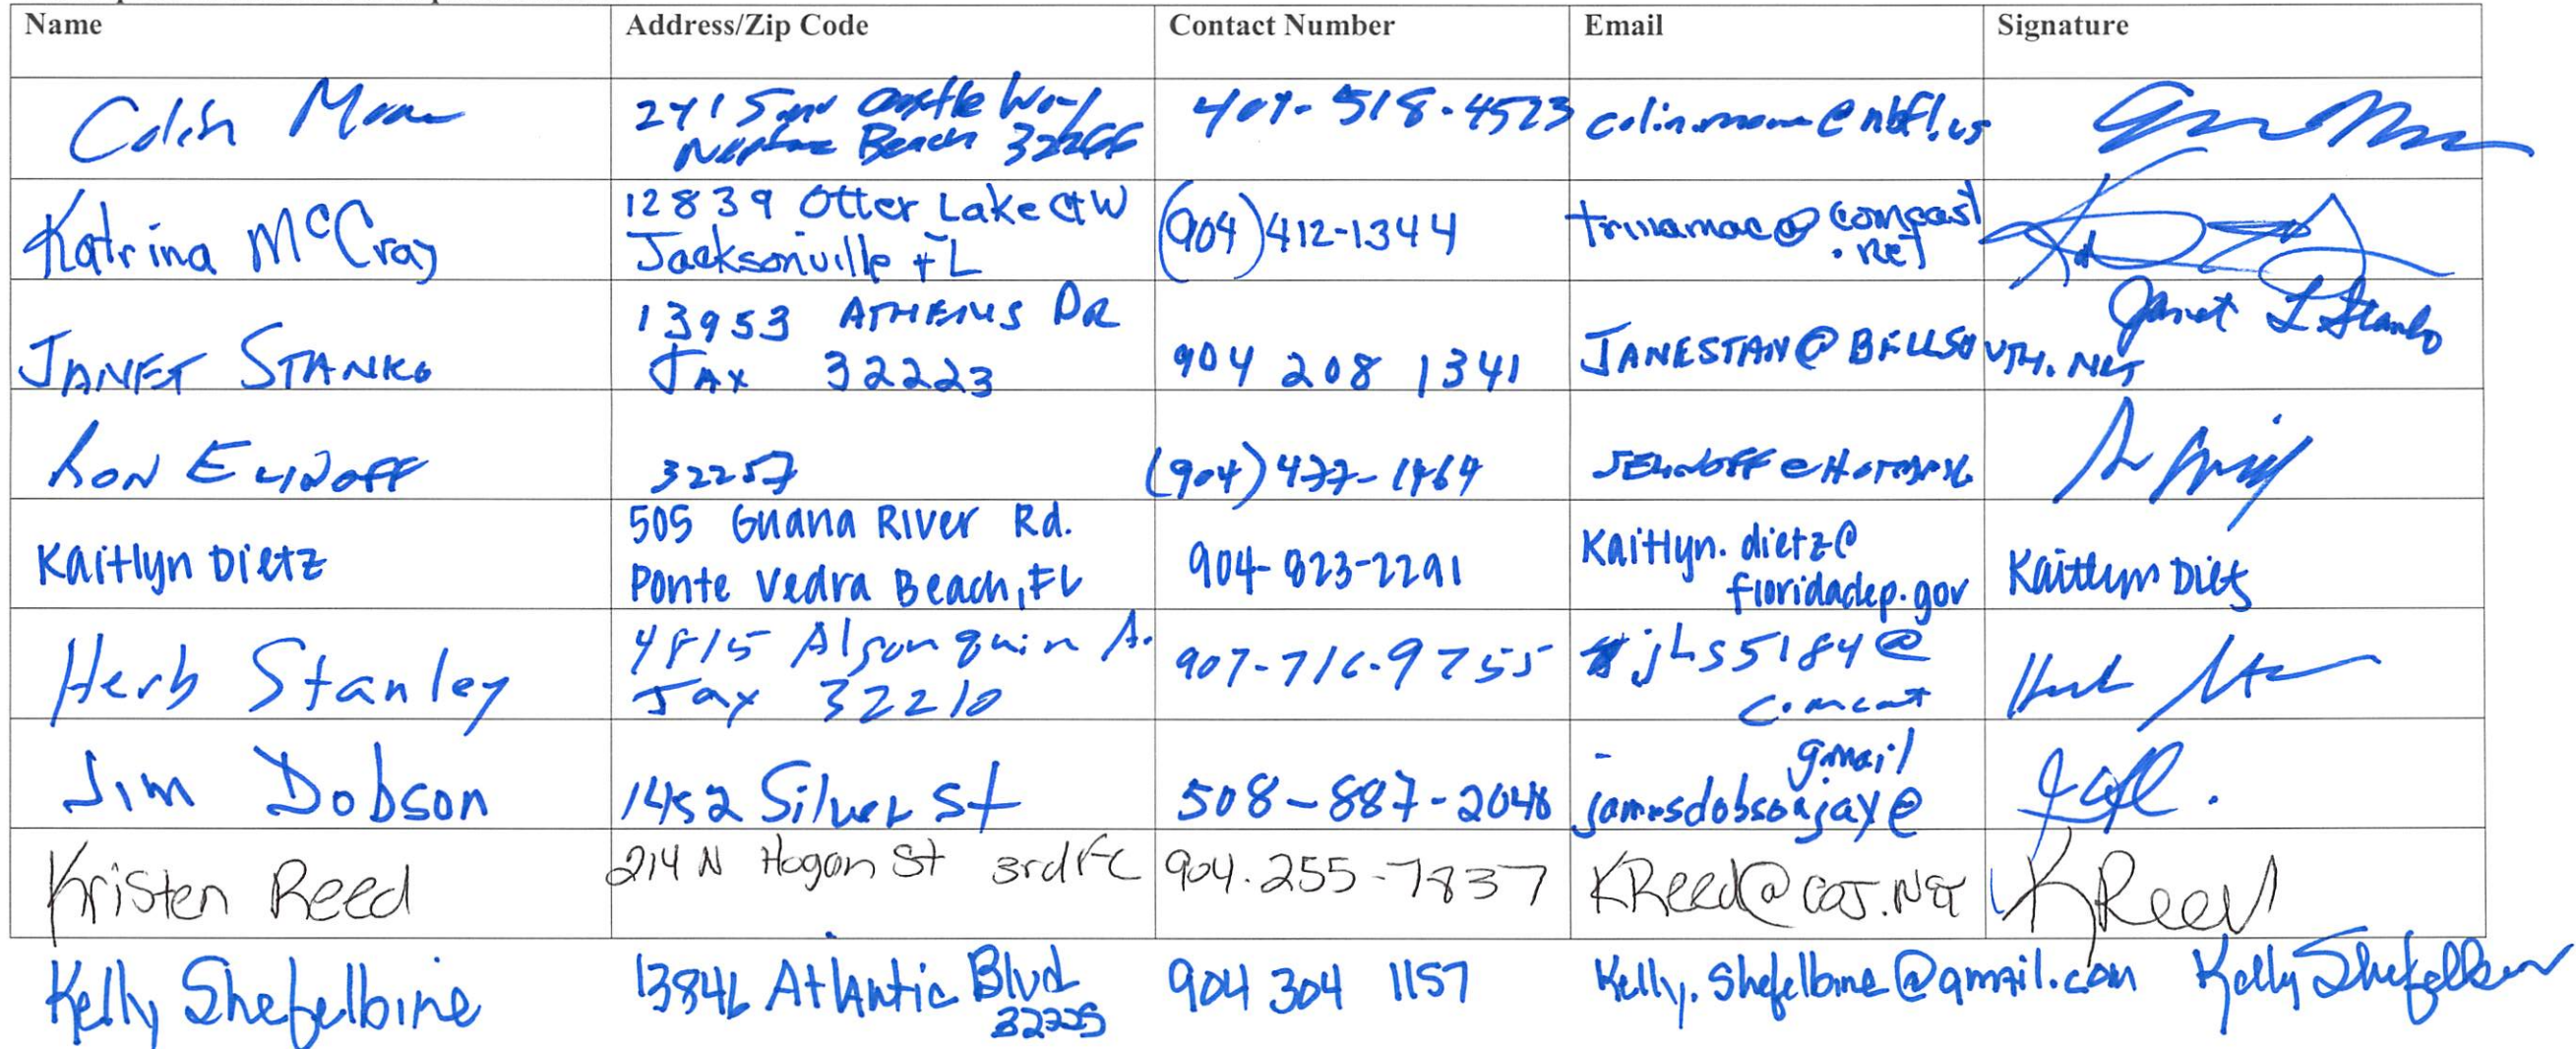 Name Address/Zip Code Contact Number Email Signature
Colin
Beach 32266
Katrina McCray
12839 Otter Lake Ct W
Jacksonville FL
(904) 412-1344
trinamac@comcast
.net
JANET STANKO
13953 ATHENS DR
JAX 32223
904 208 1341
JANESTAN@BELLSOUTH.NET
Janet L Stanko
RON ELINOFF
32257
Kaitlyn Dietz
505 Guana River Rd.
Ponte Vedra Beach, FL
904-823-2291
Kaitlyn.dietz@
floridadep.gov
Kaitlyn Dietz
Herb Stanley
4815 Algonquin A.
Jax 32210
jhs5184@
Jim Dobson
1452 Silver St
508-887-2048
gmail
jamesdobsonjax@
Kristen Reed
214 N Hogan St 3rd FL
904.255-7837
KReed@COJ.NET
KReed
Kelly Shefelbine
Atlantic Blvd
32225
904 304 1157
Kelly.Shefelbine@gmail.com
Kelly Shefelbine